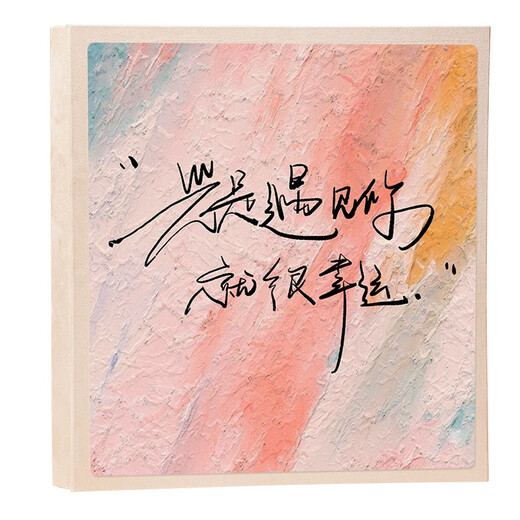 “光是遇见你
就很幸运.”